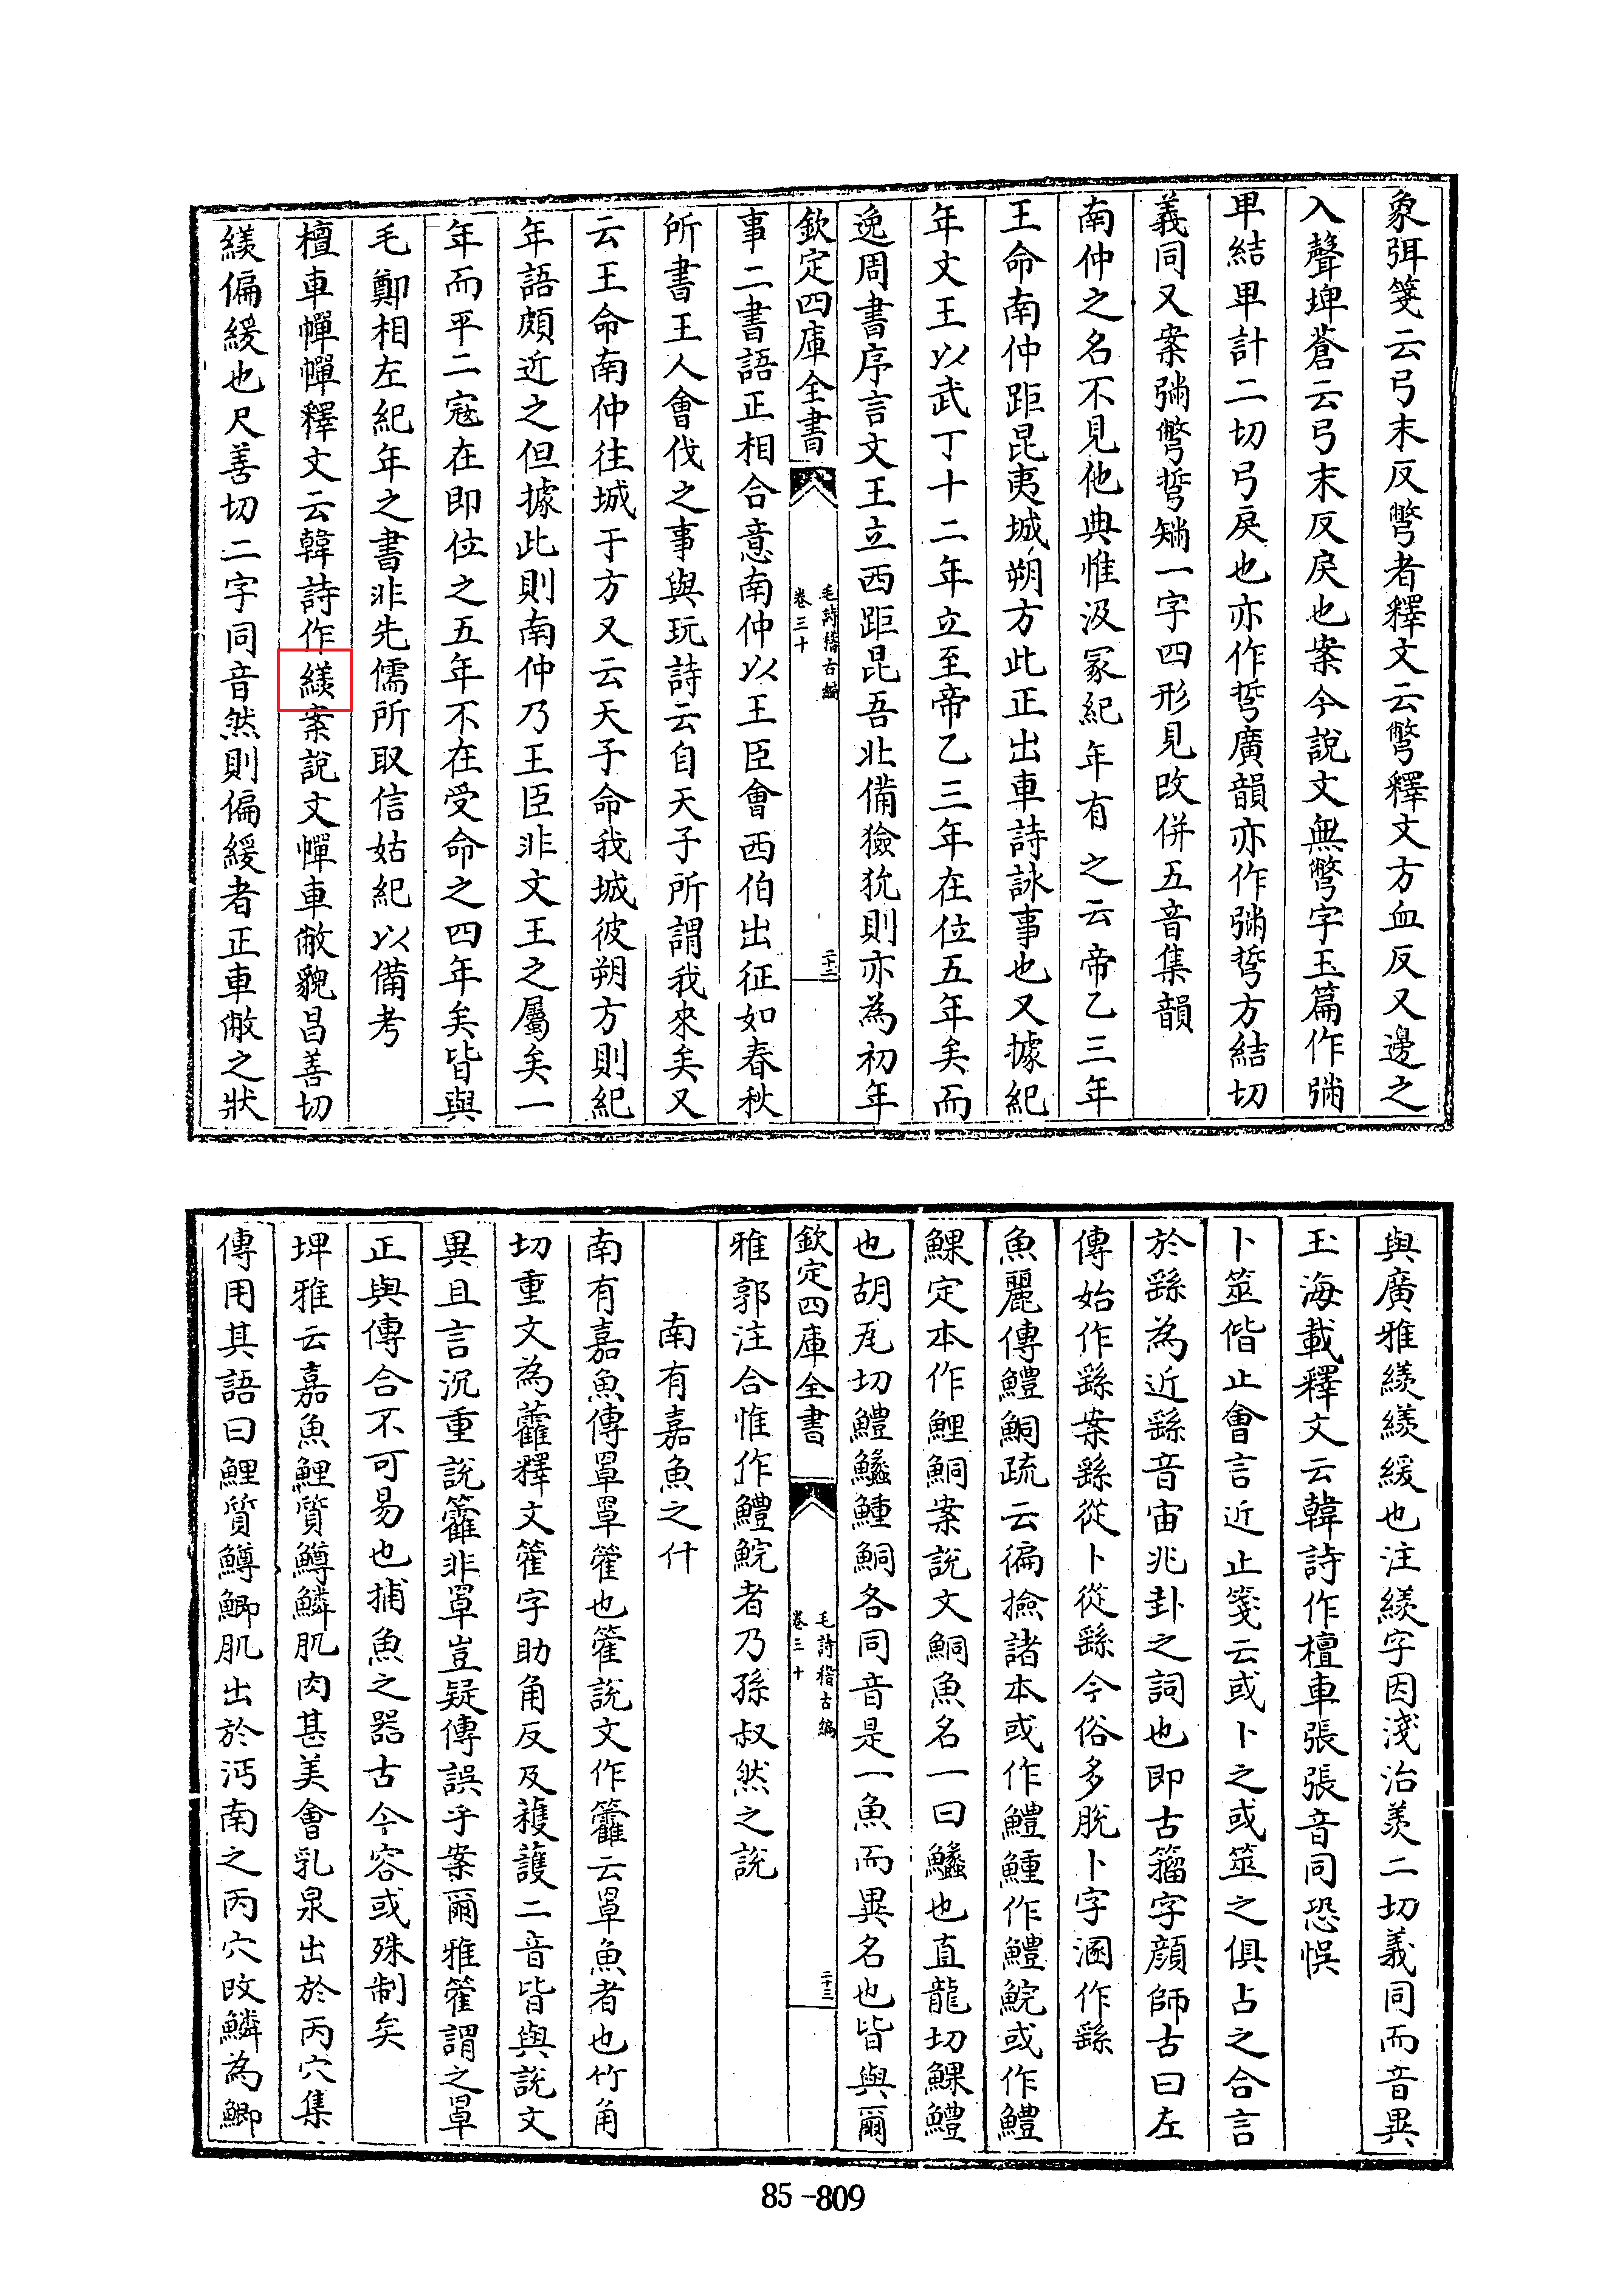 象弭箋云弓末反彆者釋文云彆釋文方血反又邊之
入聲埤蒼云弓末反戾也案今說文無彆字玉篇作
卑結卑計二切弓戾也亦作廣韻亦作方結切
義同又案彆一字四形見改併五音集韻
南仲之名不見他典惟汲冢紀年有之云帝乙三年
王命南仲距昆夷城朔方此正出車詩詠事也又據紀
年文王以武丁十二年立至帝乙三年在位五年矣而
逸周書序言文王立西距昆吾北備獫狁則亦為初年
欽定四庫全書
毛詩稽古編
卷三十
二十二
事二書語正相合意南仲以王臣會西伯出征如春秋
所書王人會伐之事與玩詩云自天子所謂我來矣又
云王命南仲往城于方又云天子命我城彼朔方則紀
年語頗近之但據此則南仲乃王臣非文王之屬矣一
年而平二寇在即位之五年不在受命之四年矣皆與
毛鄭相左紀年之書非先儒所取信姑紀以備考
檀車幝幝釋文云韓詩作䋎案說文幝車敝貌昌善切
䋎偏緩也尺善切二字同音然則偏緩者正車敝之狀
與廣雅䋎䋎緩也注䋎字因淺治羨二切義同而音異
玉海載釋文云韓詩作檀車張張音同恐悞
卜筮偕止會言近止箋云或卜之或筮之俱占之合言
於繇為近繇音宙兆卦之詞也即古籀字顏師古曰左
傳始作繇案繇從卜從繇今俗多脫卜字溷作繇
魚麗傳鱧鮦疏云徧撿諸本或作鱧作鱧鯇或作鱧
定本作鯉鮦案說文鮦魚名一曰也直龍切鱧
也胡瓦切鱧鮦各同音是一魚而異名也皆與爾
欽定四庫全書
毛詩稽古編
卷三十
二十三
雅郭注合惟作鱧鯇者乃孫叔然之說
南有嘉魚之什
南有嘉魚傳罩罩籗也籗說文作籱云罩魚者也竹角
切重文為藿釋文籗字助角反及穫護二音皆與說文
異且言沉重說籱非罩豈疑傳誤乎案爾雅籗謂之罩
正與傳合不可易也捕魚之器古今容或殊制矣
埤雅云嘉魚鯉質鱒鱗肌肉甚美會乳泉出於丙穴集
傳用其語曰鯉質鱒鯽肌出於沔南之丙穴改鱗為鯽
85-809